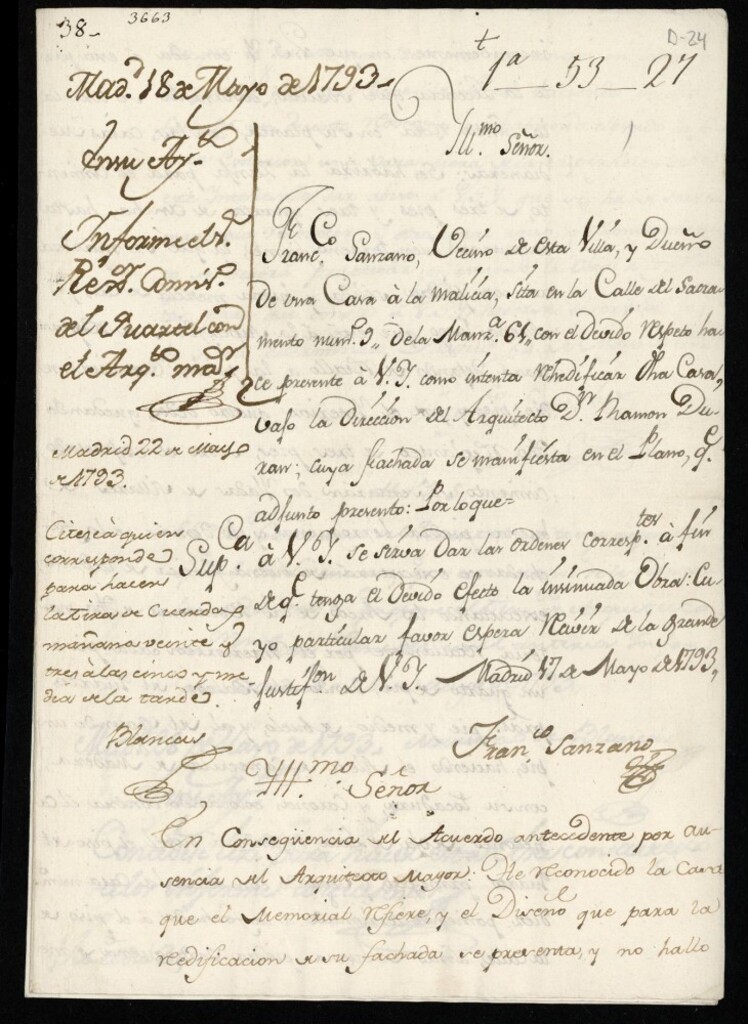 38-
3663
D-24
t
1ª_ 53_ 27
Mad.d 18 de Mayo de 1793
En su Ay.to
Informe el s.r
Rex.or Comis.o
del Quartel con
el Arq.to ma.or
Madrid 22 de Mayo
de 1793.
Citese à quien
corresponde
para hacer
la tira de Cuerdas
mañana veinte y
tres à las cinco y me
dia de la tarde.
Blancas
Ill.mo Señor.
Franc.co Sanzano, Vecino de esta Villa, y Dueño
de una Casa à la malicia, sita en la Calle del Sacra
mento num.o 9,, de la Manz.a 61,, con el devido respeto ha
ce presente à V.I. como intenta rehedificar dha Casa,
vajo la dirección del Arquitecto D.n Ramon Du-
ran; cuya fachada se manifiesta en el Plano, q.e
adjunto presento: Por lo que=
Sup.ca à V.I. se sirva dar las ordenes corresp.tes à fin
de q.e tenga el devido efecto la insinuada Obra: Cu-
yo particular favor espera recivir de la grande
justif.on de V.I. Madrid 17 de Mayo de 1793,,
Fran.co Sanzano
Yll.mo Señor
En Conseqüencia del Acuerdo antecedente por au-
sencia del Arquitecto Mayor: He reconocido la Casa
que el Memorial refiere, y el Diseño que para la
redificacion de su fachada se presenta, y no hallo